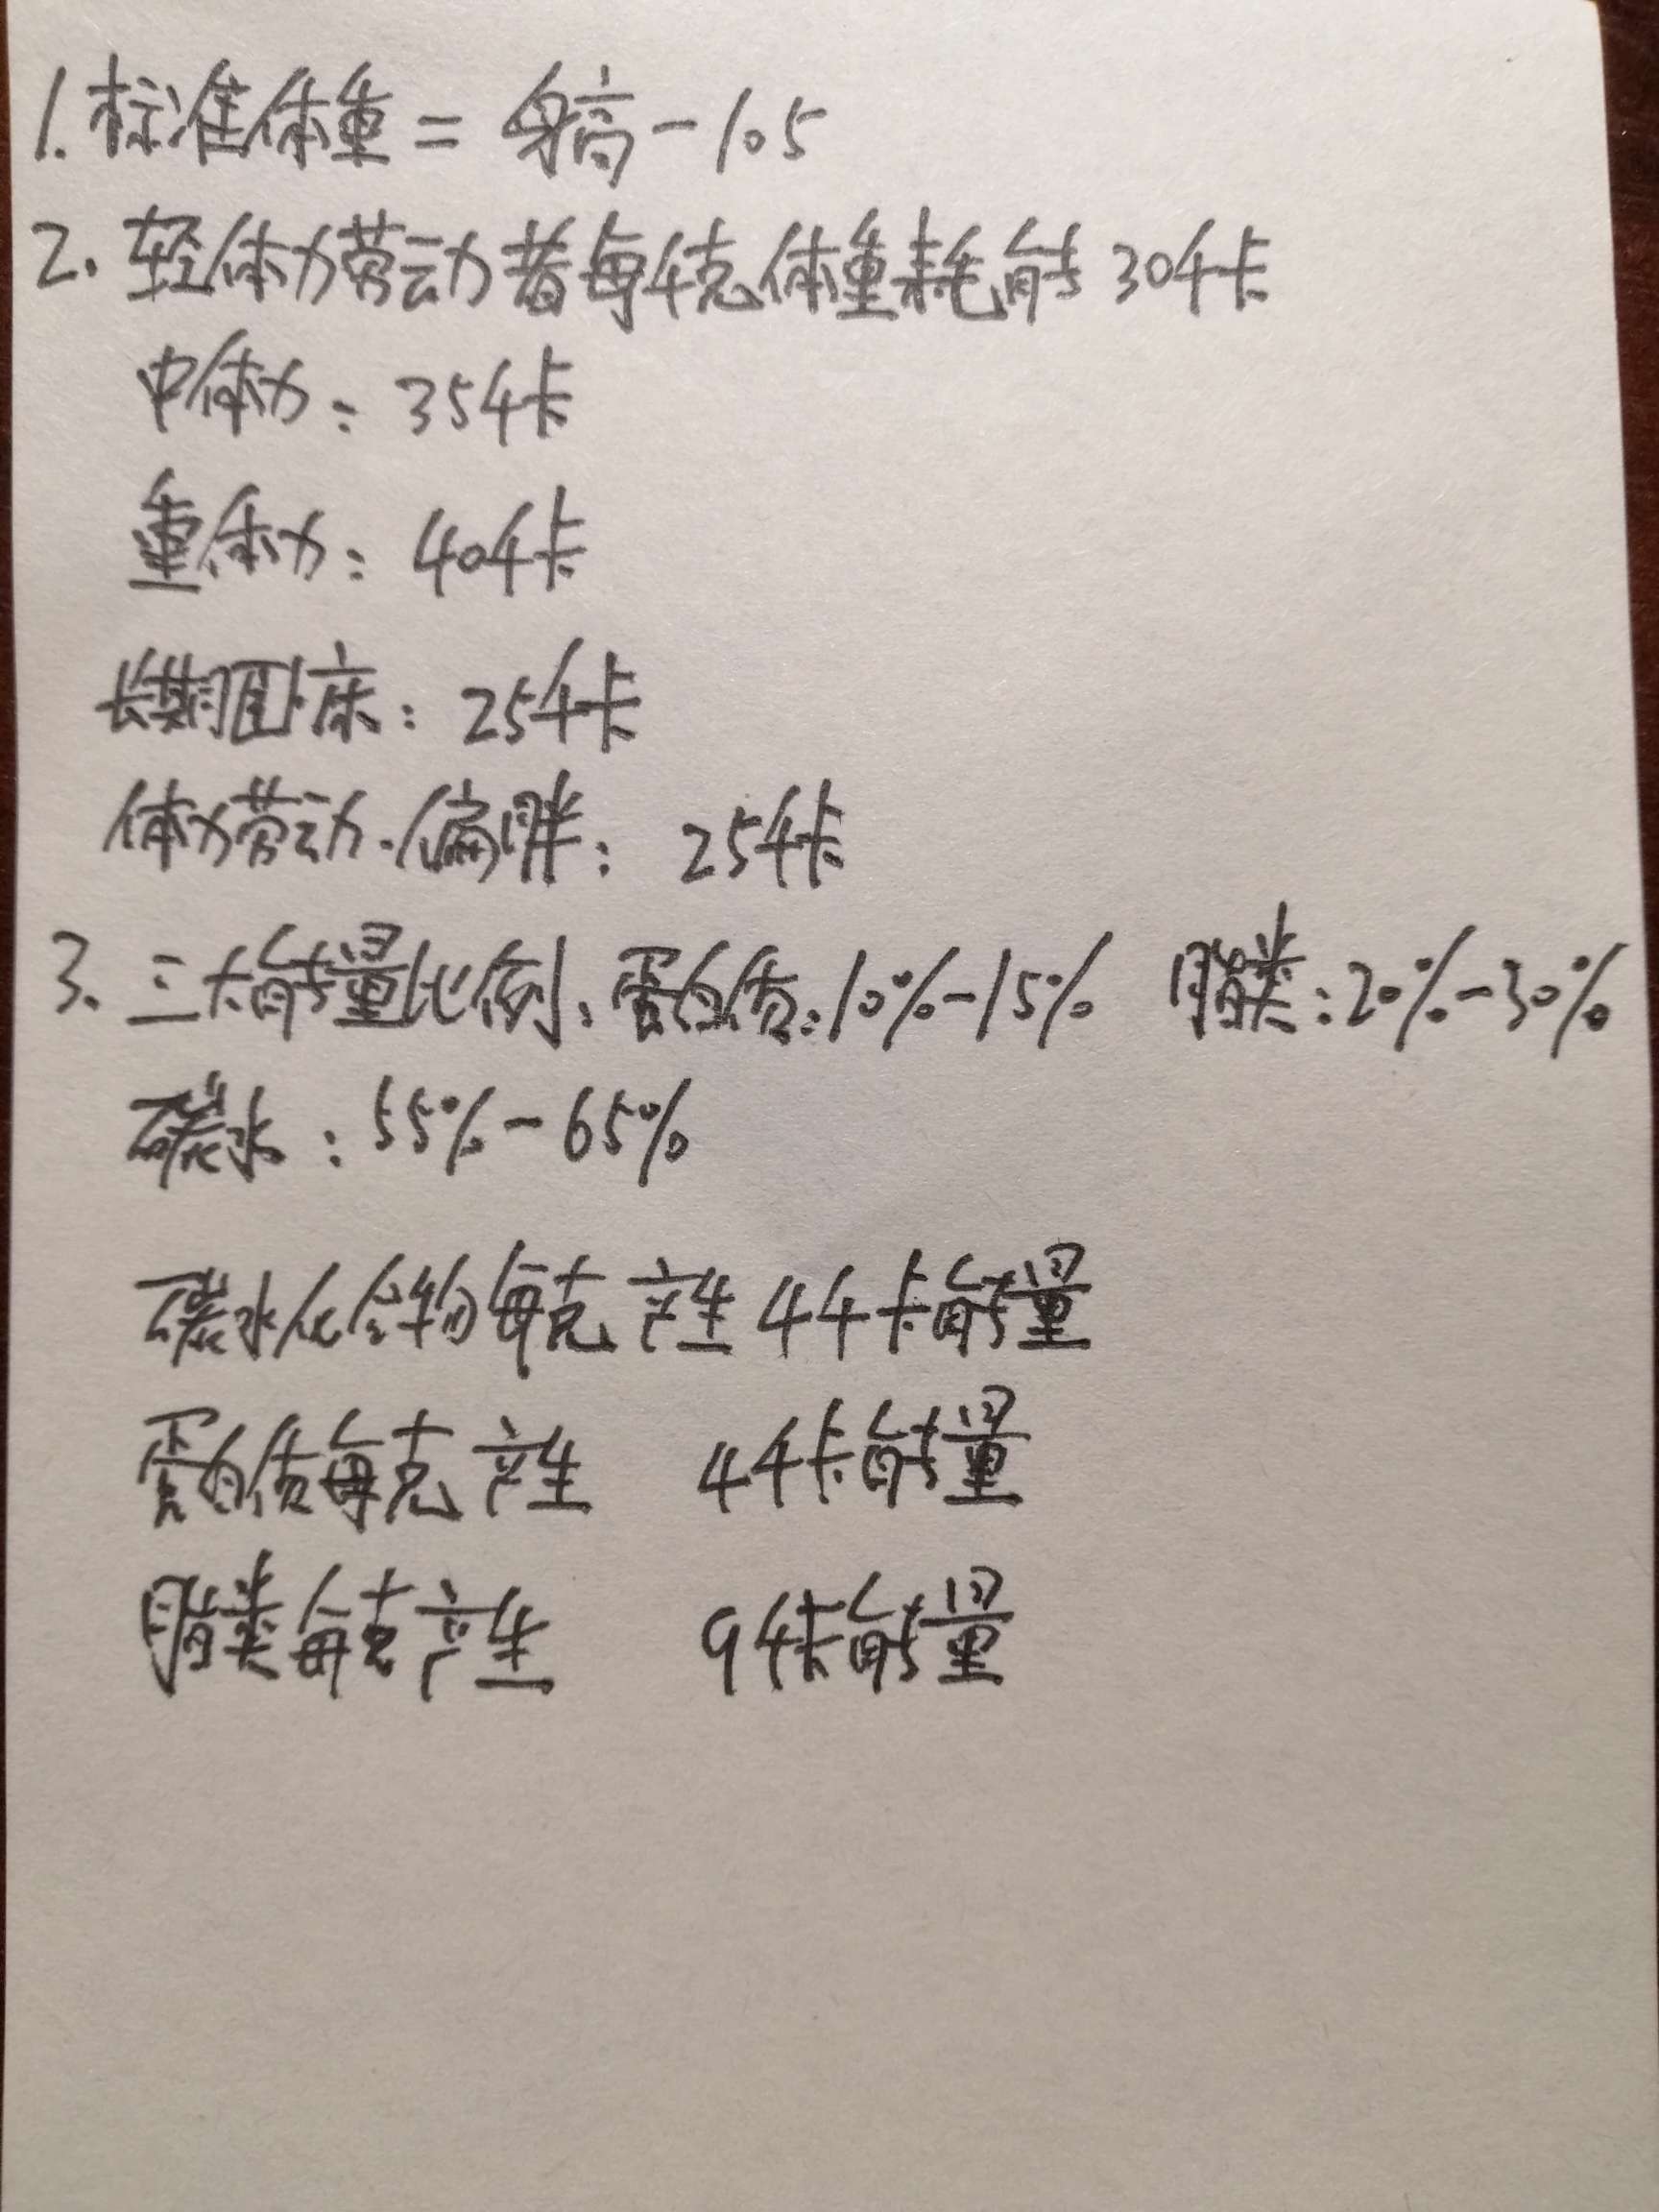 1.标准体重=身高-105
2.轻体力劳动者每千克体重耗能30千卡
中体力:35千卡
重体力:40千卡
长期卧床:25千卡
体力劳动.偏胖:25千卡
3.三大能量比例:蛋白质:10%-15% 脂类:20%-30%
碳水:55%-65%
碳水化合物每克产生4千卡能量
蛋白质每克产生 4千卡能量
脂类每克产生 9千卡能量